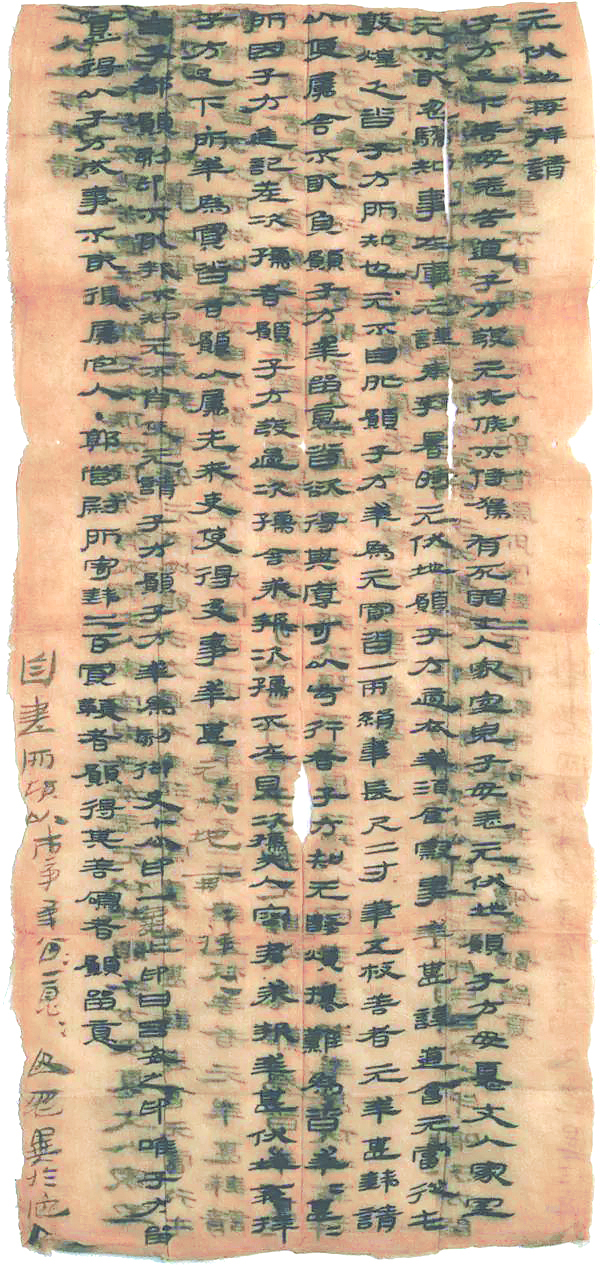 元伏地再拜請
子方足下善毋恙苦道子方發元失候不侍駕有死罪丈人家室兒子毋恙元伏地願子方毋憂丈人家室
元不敢忽驕知事在庫元謹奉教暑時元伏地願子方適衣幸酒食察事幸甚謹道會元當從屯
敦煌乏沓子方所知也元不自外願子方幸爲元買沓一兩絹韋長尺二寸筆五枚善者元幸甚錢請
以便屬舍不敢負願子方幸留意沓欲得其厚可以步行者子方知元數煩擾難爲沓幸=甚=
所因子方進記差次孺者願子方發過次孺舍求報次孺不在見次孺夫人容君求報幸甚伏地再拜
子方足下所幸爲買沓者願以屬先來吏使得及事幸甚元伏地再拜再拜
呂子都願刻印不敢報不知元不肖使元請子方願子方幸爲刻御史七分印一龜上印曰呂安之印唯子方留
意得以子方成事不敢復屬它人●郭營尉所寄錢二百買鞭者願得其善鳴者願留意
自書所願以市事幸留=意=毋忽異於它人